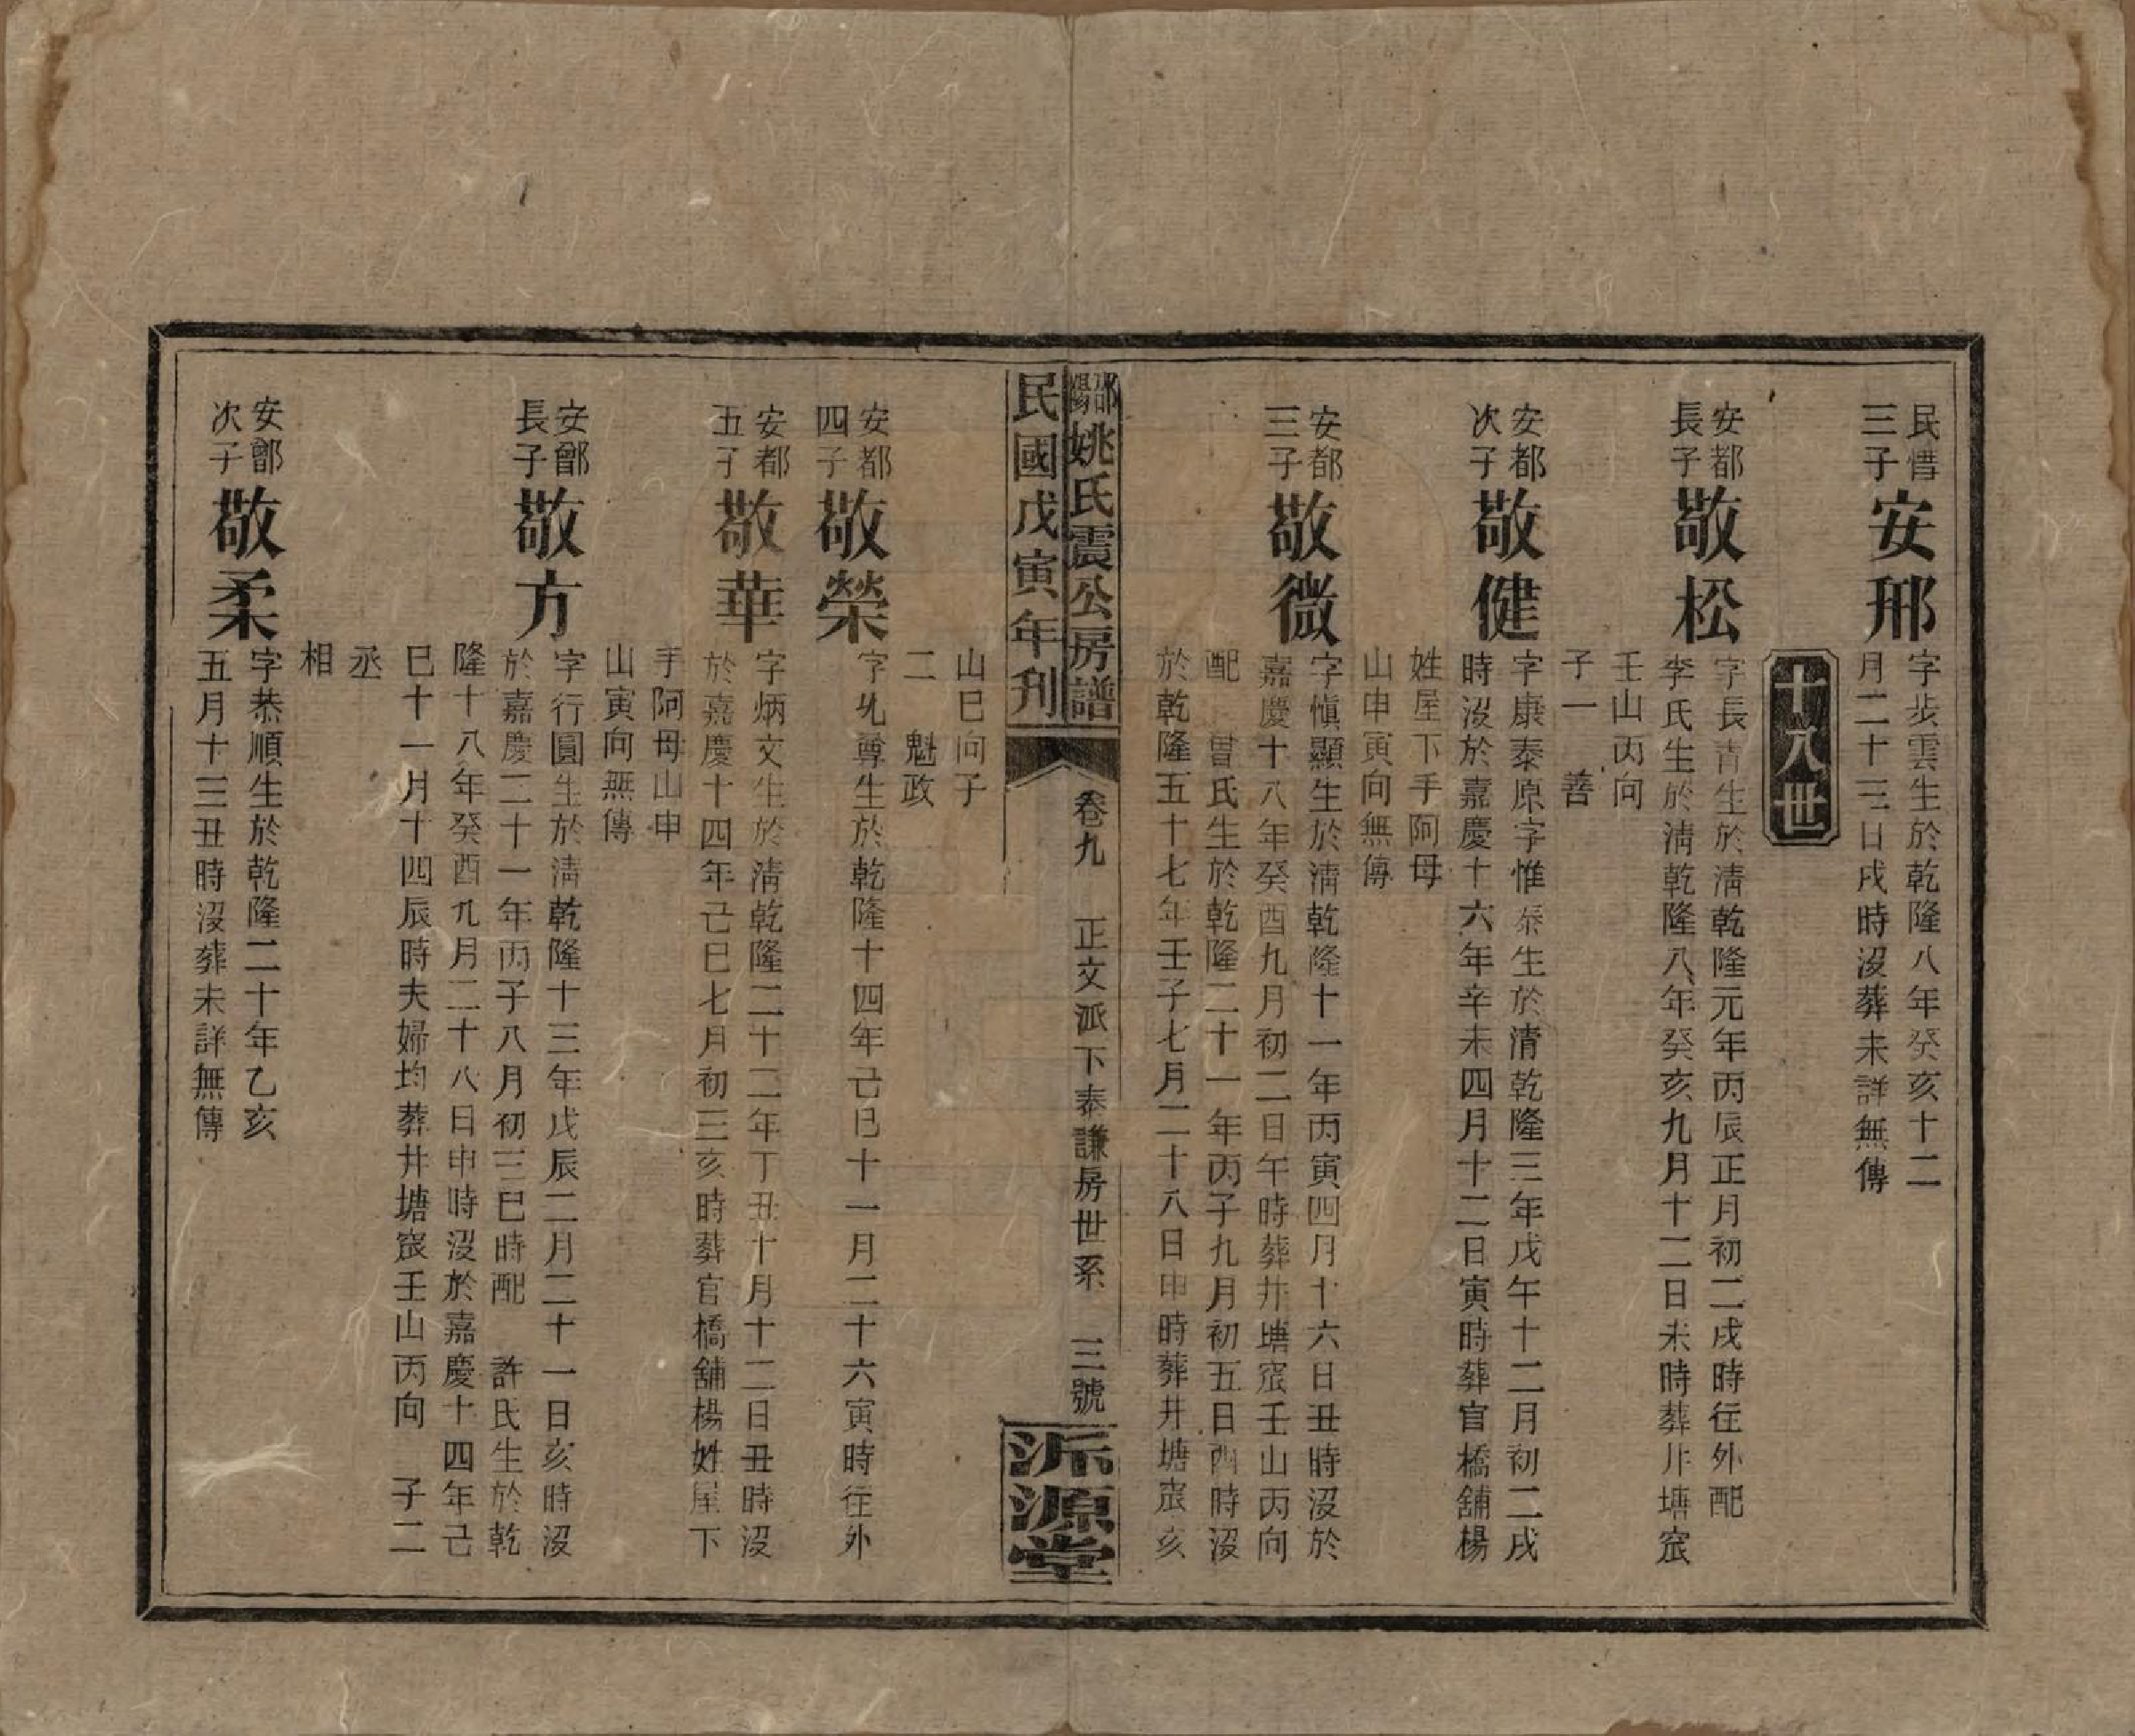 民惜
三子
安邢
字步雲生於乾隆八年癸亥十二
月二十三日戌時沒葬未詳無傳
十八世
安都
長子
敬松
字長青生於清乾隆元年丙辰正月初二戌時往外配
李氏生於清乾隆八年癸亥九月十二日未時葬井塘窊
壬山丙向
子一　善
安都
次子
敬健
字康泰原字惟泰生於清乾隆三年戊午十二月初二戌
時沒於嘉慶十六年辛未四月十二日寅時葬官橋舖楊
姓屋下手阿母
山申寅向無傳
安都
三子
敬微
字慎顯生於清乾隆十一年丙寅四月十六日丑時沒於
嘉慶十八年癸酉九月初二日午時葬井塘窊壬山丙向
配　曾氏生於乾隆二十一年丙子九月初五日酉時沒
於乾隆五十七年壬子七月二十八日申時葬井塘窊亥
邵陽姚氏震公房譜
民國戊寅年刋
卷九　正文派下泰謙房世系　三號
派源堂
山巳向子
二　魁政
安都
四子
敬榮
字九尊生於乾隆十四年己巳十一月二十六寅時往外
安都
五子
敬華
字炳文生於清乾隆二十二年丁丑十月十二日丑時沒
於嘉慶十四年己巳七月初三亥時葬官橋舖楊姓屋下
手阿母山申
山寅向無傳
安鄫
長子
敬方
字行圓生於清乾隆十三年戊辰二月二十一日亥時沒
於嘉慶二十一年丙子八月初三巳時配　許氏生於乾
隆十八年癸酉九月二十八日申時沒於嘉慶十四年己
巳十一月十四辰時夫婦均葬井塘窊壬山丙向　子二
丞
相
安鄫
次子
敬柔
字恭順生於乾隆二十年乙亥
五月十三丑時沒葬未詳無傳